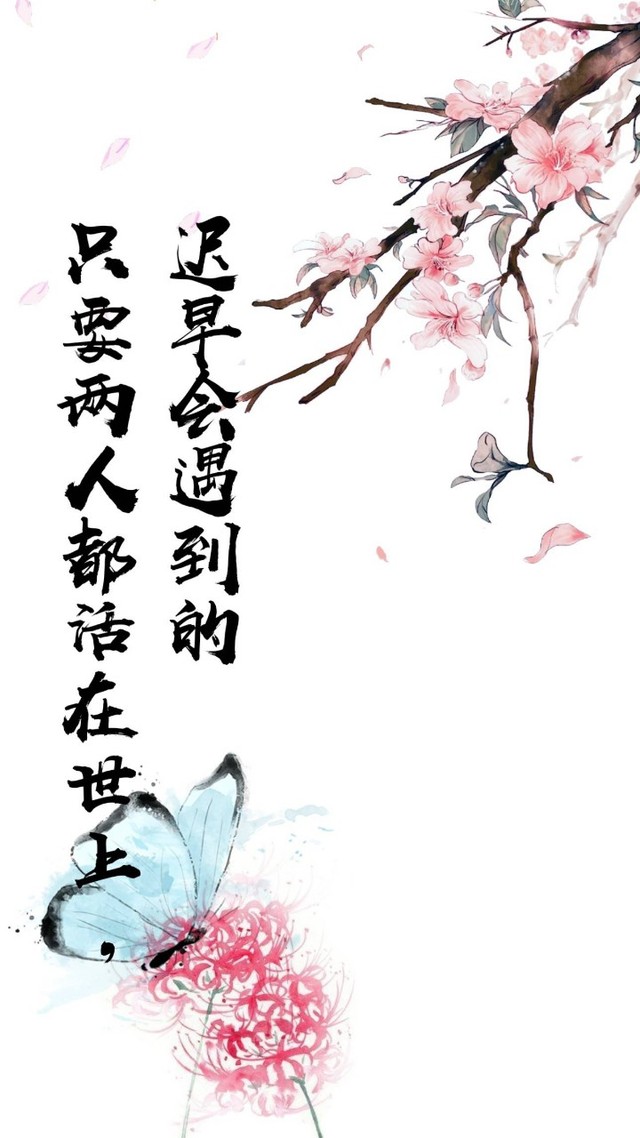 只要两人都活在世上，
迟早会遇到的